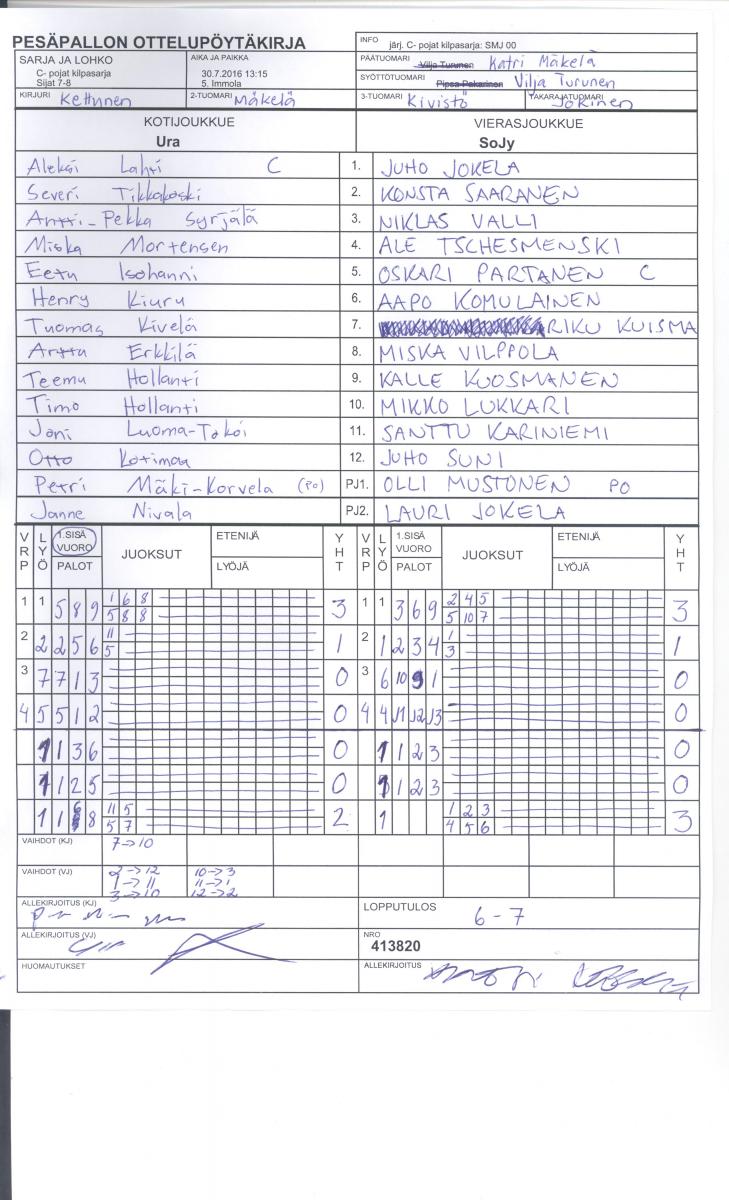 PESÄPALLON OTTELUPÖYTÄKIRJA
INFO järj. C- pojat kilpasarja: SMJ 00
SARJA JA LOHKO
C- pojat kilpasarja
Sijat 7-8
AIKA JA PAIKKA
30.7.2016 13:15
5. Immola
PÄÄTUOMARI Vilja Turunen Katri Mäkelä
SYÖTTÖTUOMARI Pipsa Pakarinen Vilja Turunen
KIRJURI Kettunen 2-TUOMARI Mäkelä 3-TUOMARI Kivistö TAKARAJATUOMARI Jokinen
KOTIJOUKKUE VIERASJOUKKUE
Ura SoJy
Aleksi Lahti C 1. JUHO JOKELA
Severi Tikkakoski 2. KONSTA SAARANEN
Antti-Pekka Syrjälä 3. NIKLAS VALLI
Miska Mortensen 4. ALE TSCHESMENSKI
Eetu Isohanni 5. OSKARI PARTANEN C
Henry Kiuru 6. AAPO KOMULAINEN
Tuomas Kivelä 7. RIKU KUISMA
Arttu Erkkilä 8. MISKA VILPPOLA
Teemu Hollanti 9. KALLE KUOSMANEN
Timo Hollanti 10. MIKKO LUKKARI
Joni Luoma-Tokoi 11. SANTTU KARINIEMI
Otto Kotimaa 12. JUHO SUNI
Petri Mäki-Korvela (PO) PJ1. OLLI MUSTONEN PO
Janne Nivala PJ2. LAURI JOKELA
VRP LYÖ 1.SISÄ VUORO PALOT JUOKSUT ETENIJÄ LYÖJÄ YHT VRP LYÖ 1.SISÄ VUORO PALOT JUOKSUT ETENIJÄ LYÖJÄ YHT
1 1 5 8 9 1 6 8 3 1 1 3 6 9 2 4 5 3
5 8 8 5 10 7
2 2 2 5 6 11 1 2 1 2 3 4 1 1
5 3
3 7 7 1 3 0 3 6 10 9 1 0
4 5 5 1 2 0 4 4 11 12 13 0
1 1 3 6 0 1 1 2 3 0
1 1 2 5 0 1 1 2 3 0
1 1 6 8 11 5 2 1 1 2 3 3
5 7 4 5 6
VAIHDOT (KJ) 7→10
VAIHDOT (VJ) 2→12 10→3
1→11 11→1
3→10 12→2
ALLEKIRJOITUS (KJ)
LOPPUTULOS 6-7
ALLEKIRJOITUS (VJ)
NRO
413820
HUOMAUTUKSET
ALLEKIRJOITUS